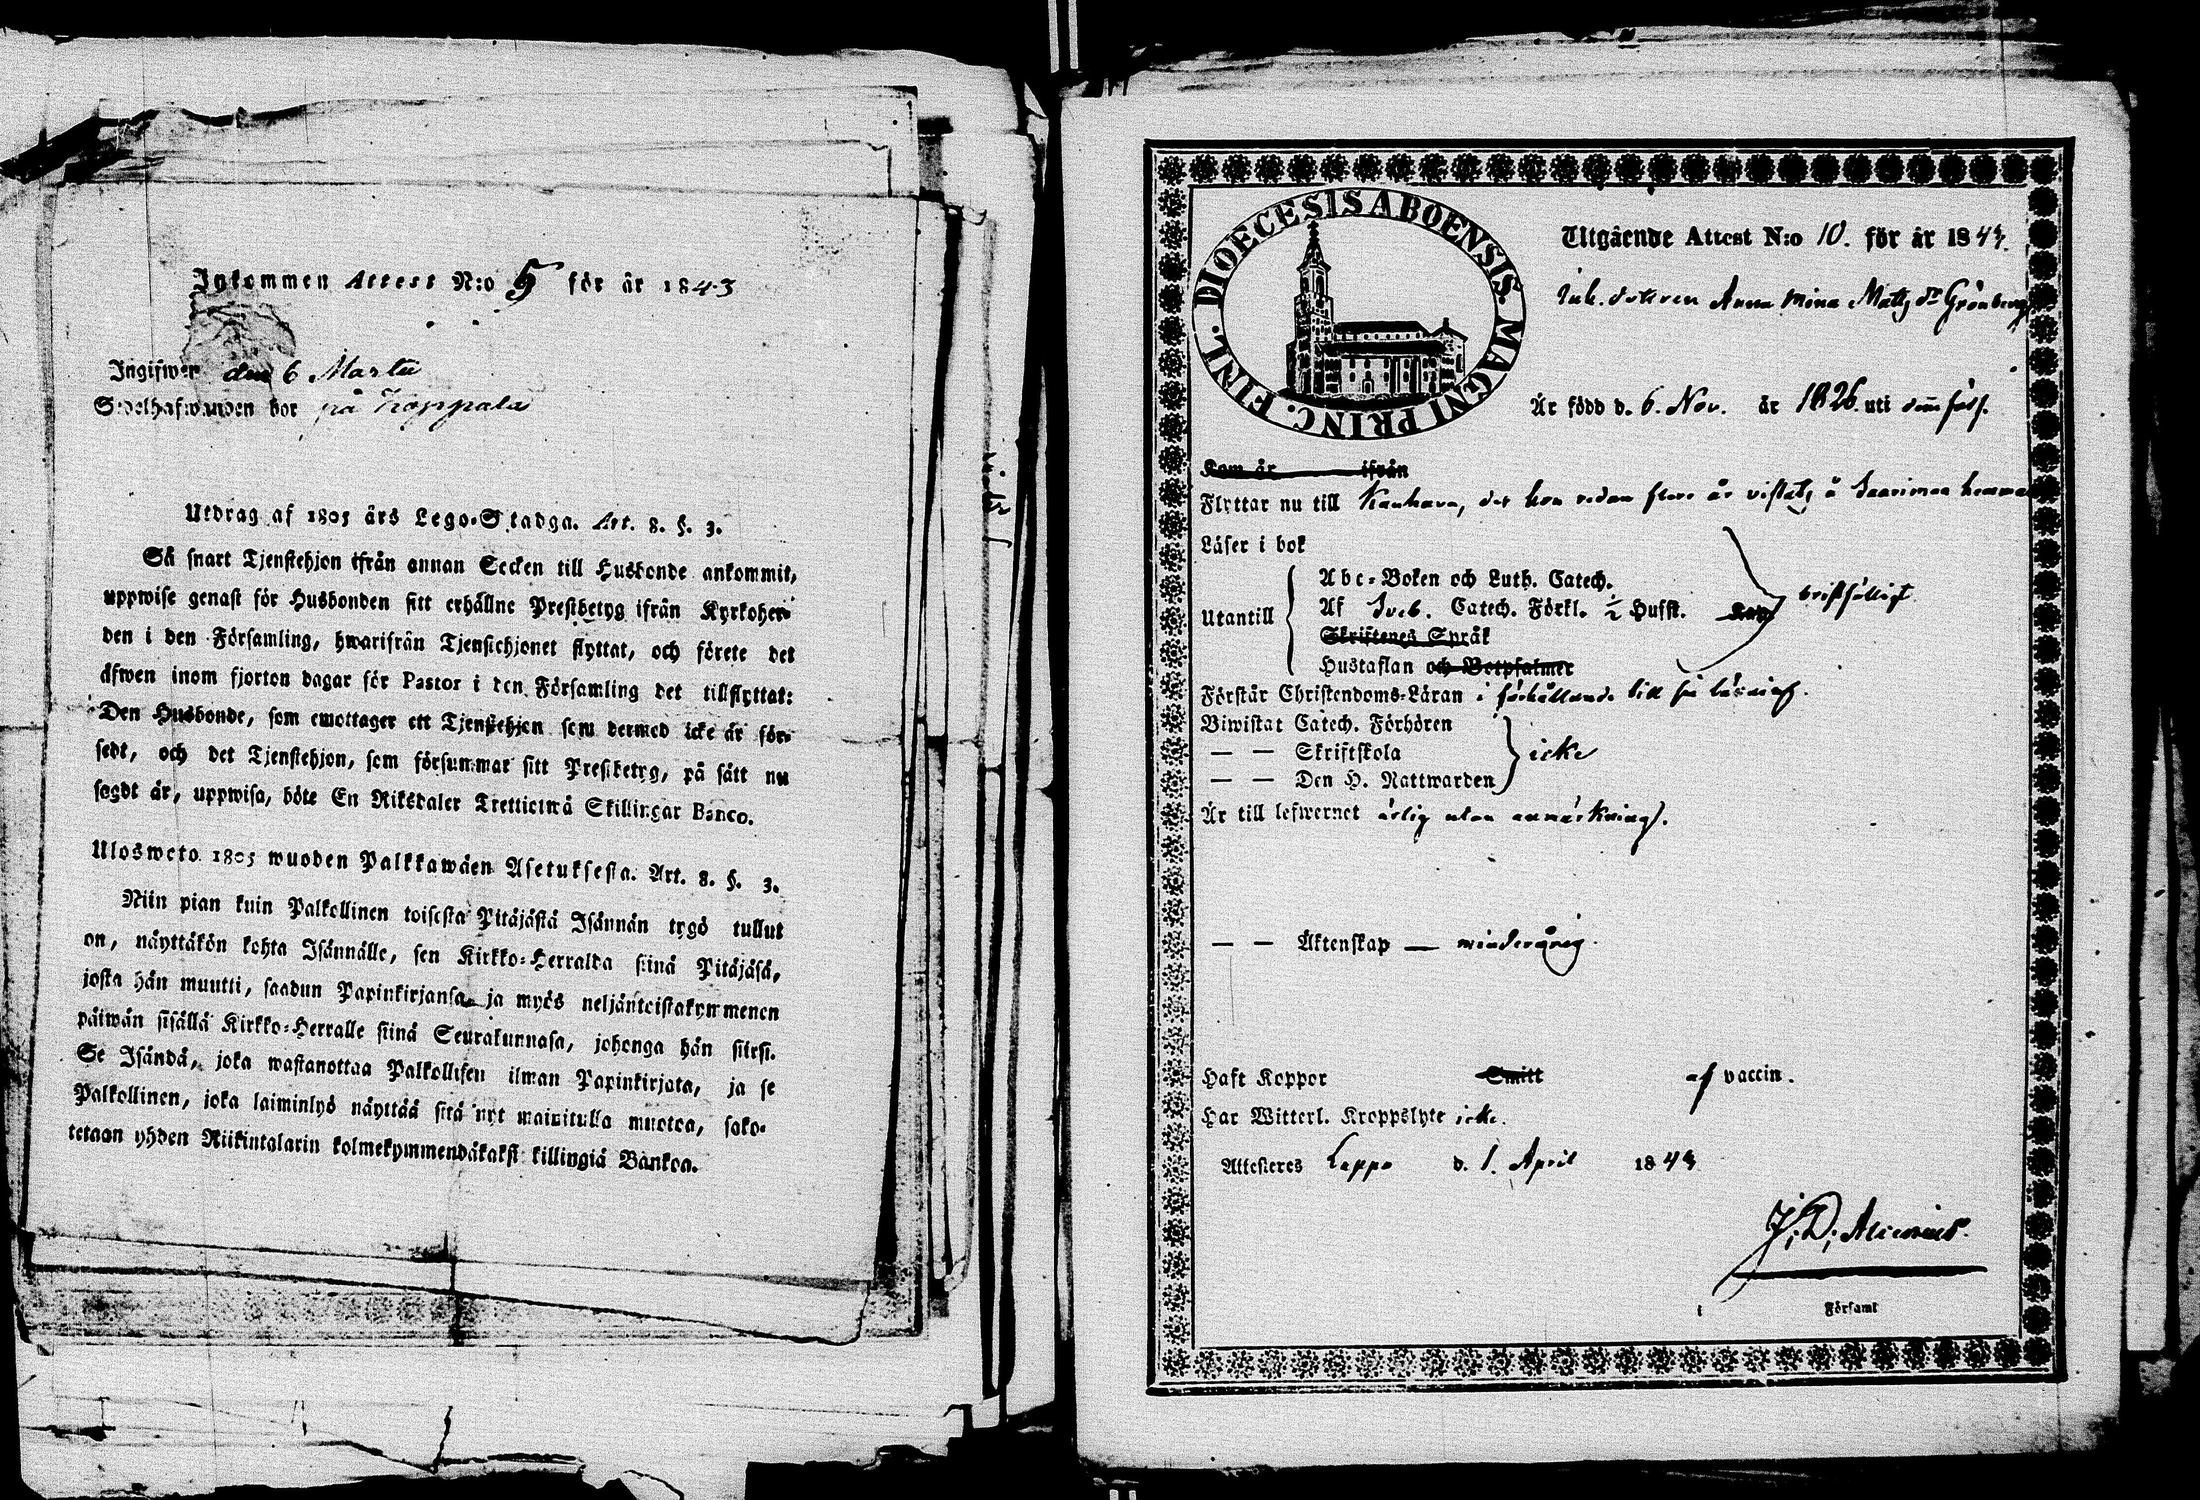 Inkommen Attest N:o 5 för år 1843
Ingifwer den 6 Martii
Sedelhafwanden bor på Koppala
Utdrag af 1805 års Lego-Stadga. Art. 8. §. 3.
Så snart Tjenstehjon ifrån annan Socken till Husbonde ankommit,
uppwise genast för Husbonden sitt erhållne Prestbetyg ifrån Kyrkoher-
den i den Församling, hwarifrån Tjenstehjonet flyttat, och förete det
äfwen inom fjorton dagar för Pastor i den Församling det tillflyttat:
Den Husbonde, som emottager ett Tjenstehjon som dermed icke är för-
sedt, och det Tjenstehjon, som försummar sitt Prestbetyg, på sätt nu
sagdt är, uppwisa, böte En Riksdaler Trettiotwå Skillingar Banco.
Uloswoto 1805 wuoden Palkkawäen Asetuksesta. Art. 8. §. 3.
Niin pian kuin Palkollinen toisesta Pitäjästä Isännän tygö tullut
on, näyttäkön kohta Isännälle, sen Kirkko-Herralda siinä Pitäjäsä,
josta hän muutti, saadun Papinkirjansa, ja myös neljäntoistakymmenen
päiwän sisällä Kirkko-Herralle siinä Seurakunnasa, johonga hän siirsi.
Se Isändä, joka wastanottaa Palkollisen ilman Papinkirjata, ja se
Palkollinen, joka laiminlyö näyttää sitä nyt mainitulla muotoa, sako-
tetaan yhden Riikintalarin kolmekymmendäkaksi killingiä Bankoa.
DIOECESIS ABOENSIS. MAGNI PRINC. FINL.
Utgående Attest N:o 10. för år 1843.
Inh. dotteren Anna Mina Matts dr Grönberg
Är född d. 6. Nov. år 1826. uti denn förs.
Kom år ifrån
Flyttar nu till Kauhava, der hon redan flere år vistats å Saarimaa hemman
Läser i bok
Abc-Boken och Luth. Catech.
Utantill Af Sveb. Catech. Förkl. ½ Hufst. bristfälligt
Skriftenes Språk
Hustaflan och Botpsalmer
Förstår Christendoms-Läran i förhållande till sin läsning.
Biwistat Catech. Förhören
— — Skriftskola icke
— — Den H. Nattwarden
Är till lefwernet ärlig utan anmärkning.
— — Äktenskap — minderårig.
Haft Koppor Smitt af vaccin.
Har Witterl. Kroppslyte icke.
Attesteres Lappo d. 1. April 1843
i Församl